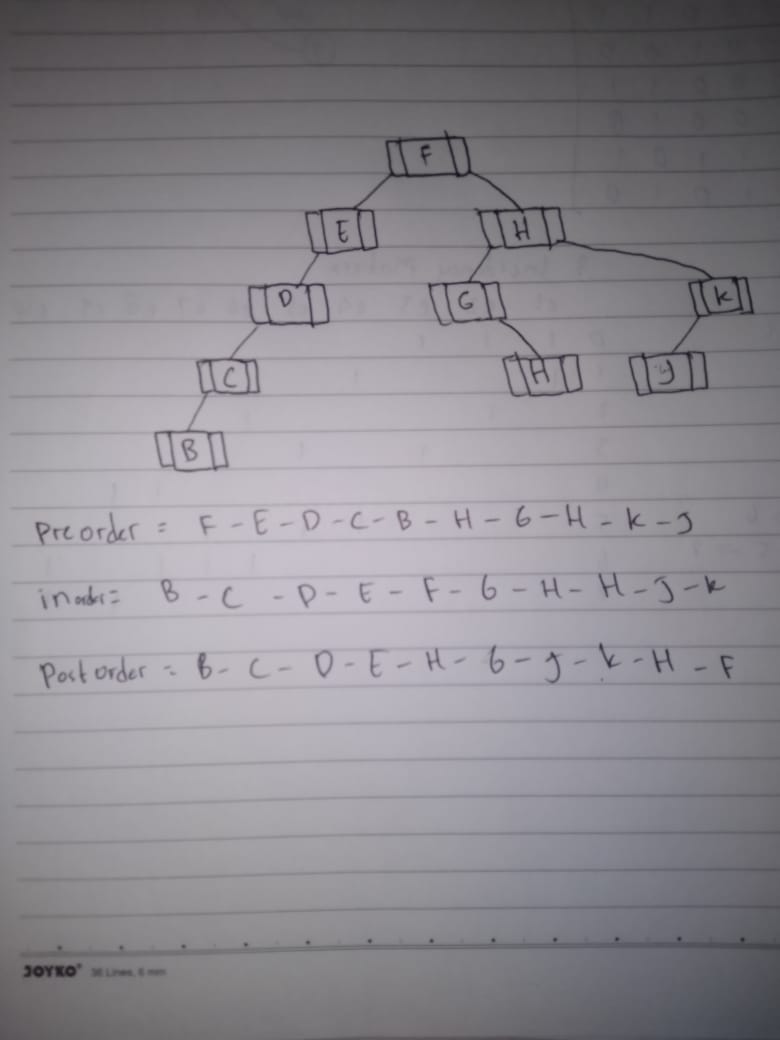 F
E H
D G K
C H J
B
Preorder = F - E - D - C - B - H - G - H - K - J
inorder = B - C - D - E - F - G - H - H - J - K
Postorder = B - C - D - E - H - G - J - K - H - F
JOYKO® 36 Lines, 6 mm